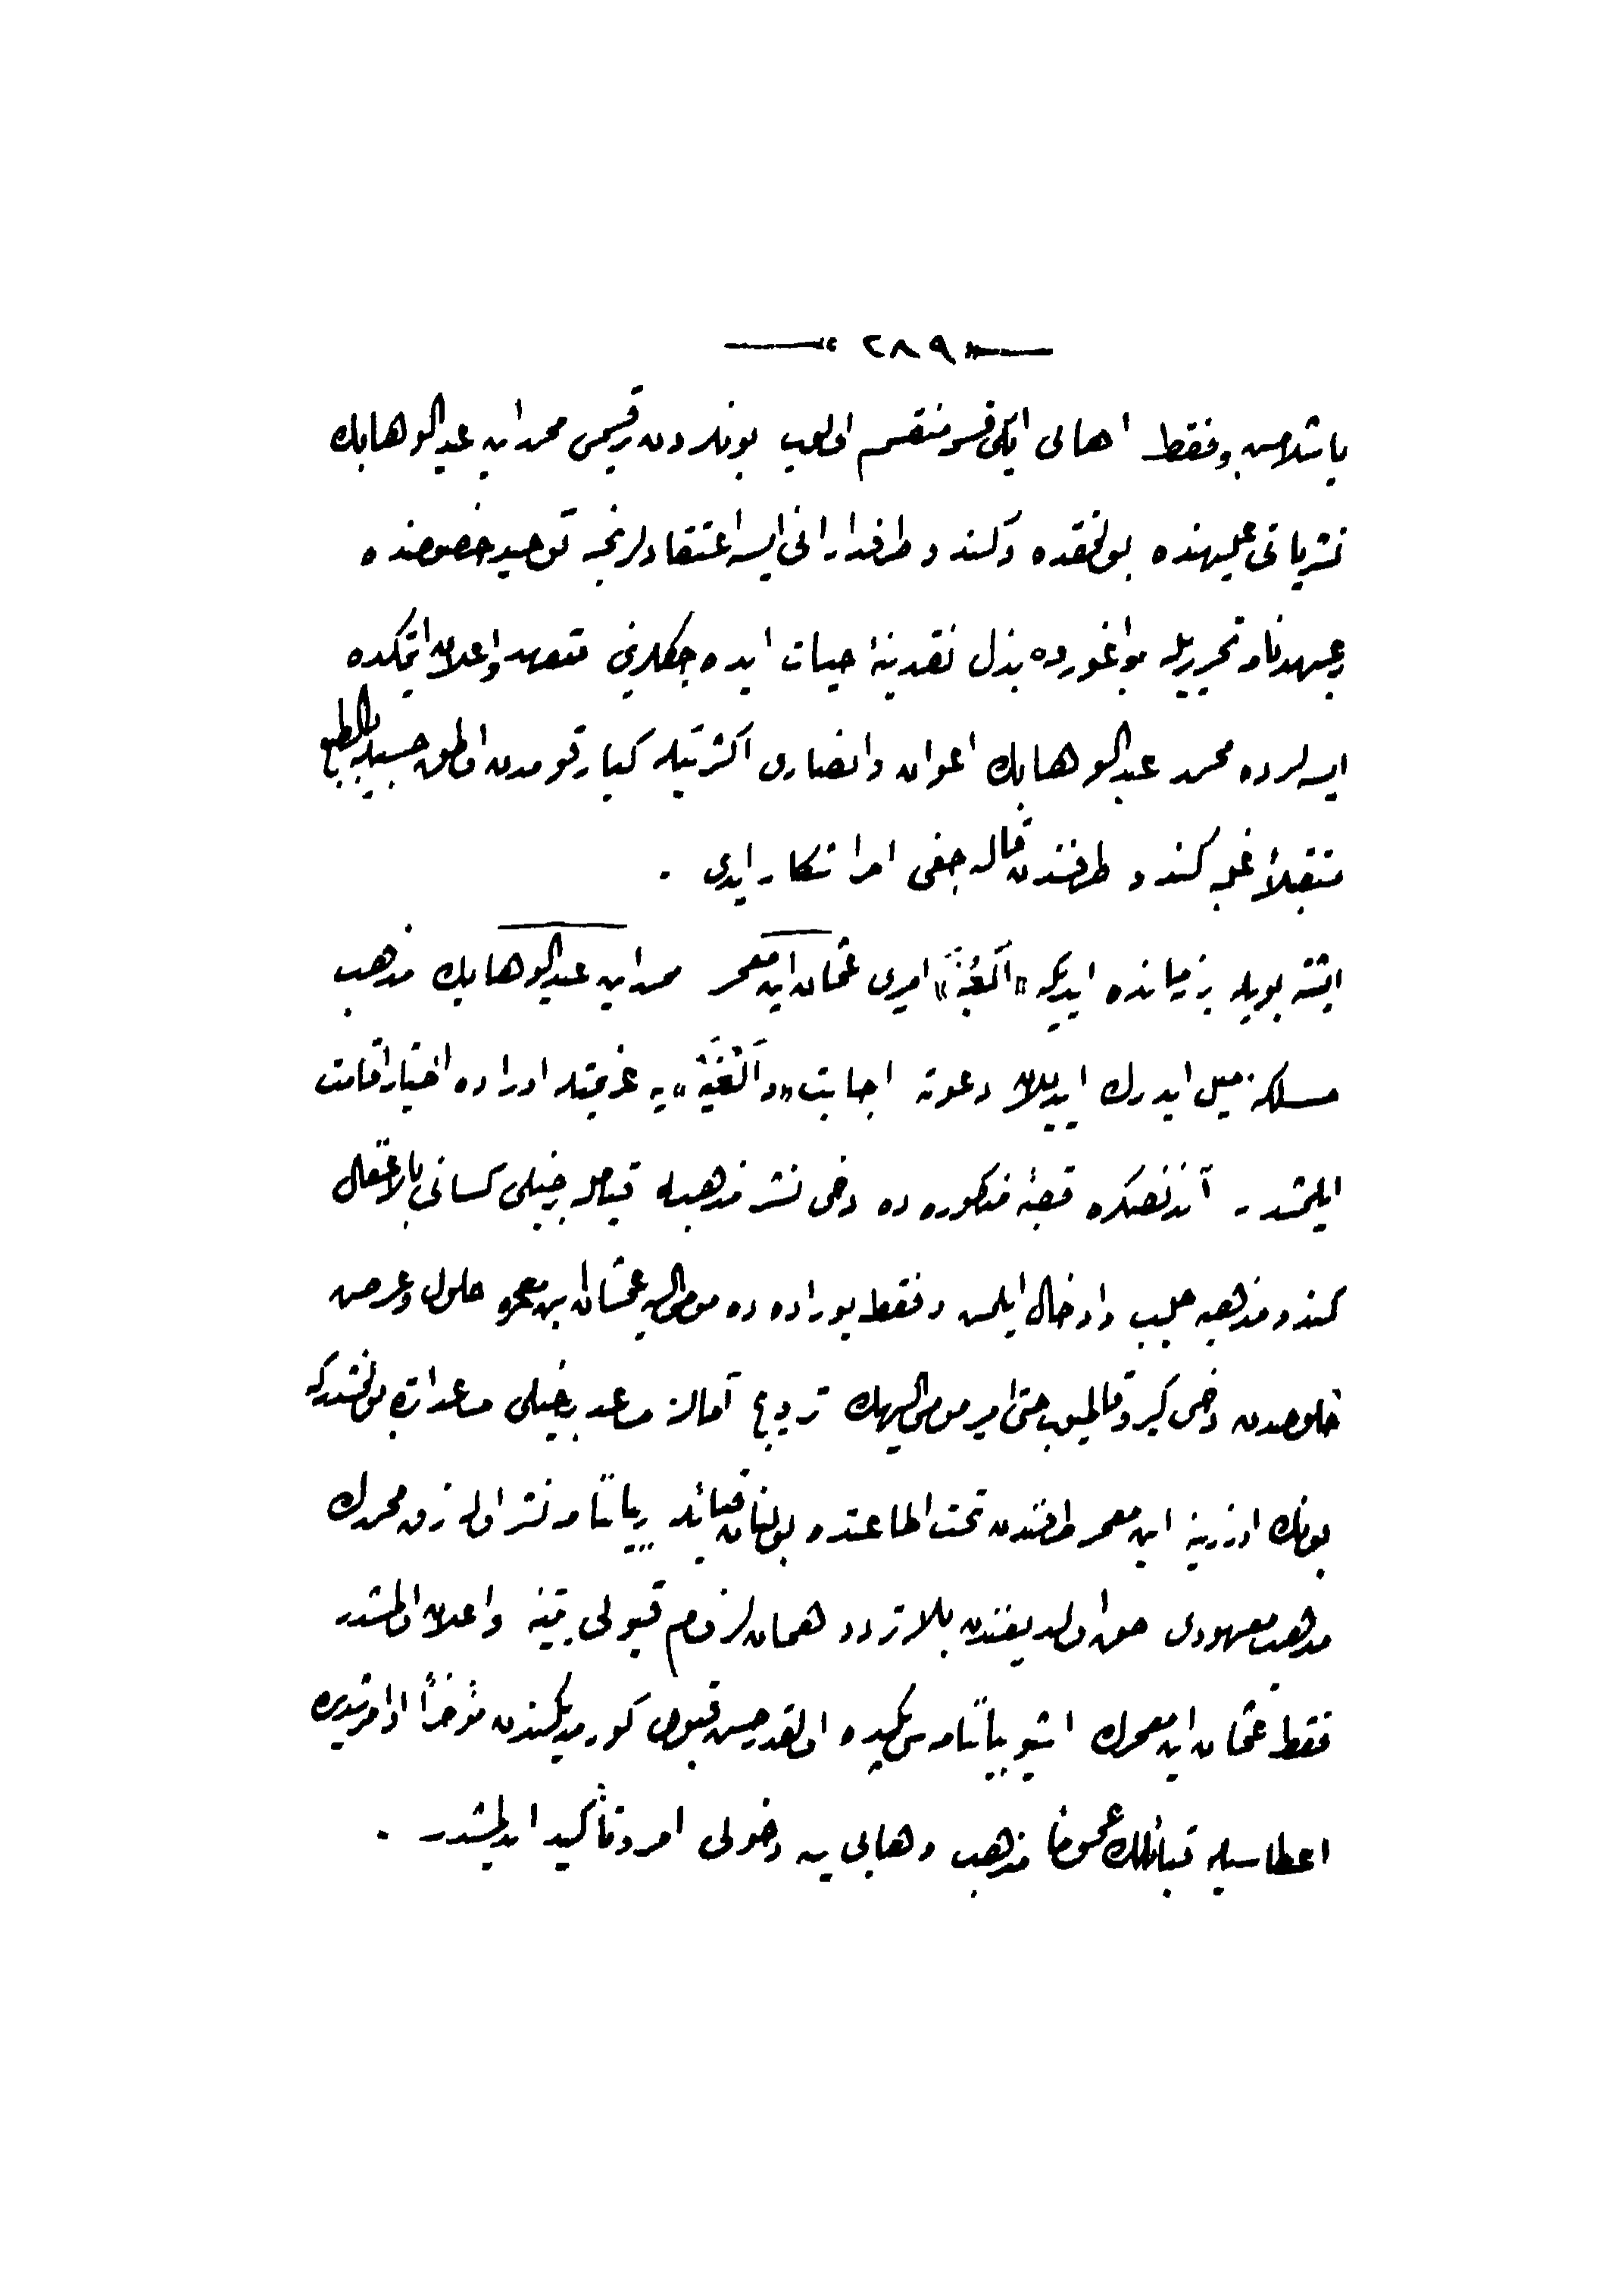 —« ٢٨٩ »—
باشلامش وفقط اهالی ایکی قسمه منقسم اولوب بونلردن بر قسمی محمد ابن عبدالوهابك
نشریاتی علیهنده بولنمقده وکندو طرفدارانی ایسه اعتقادلرنجه توحید خصوصنده
بر عهدنامه تحریریله بو اوغورده بذل نقدینهٔ حیات ایده جکلرینی متعهد واعلان ایتمکده
ایسه لرده محمد عبدالوهابك اعوان وانصاری اکثریتله کبار قومدن اولمق حسبیله بالطبع
مستقبلاً غلبه کندو طرفندن قاله جغی امر آشکار ایدی .
ایشته بویله بر زمانده ایدیکه «اَلعُیَیْنَه» امیری عثمان ابن معمر محمد ابن عبدالوهابك مذهب
مسلکنه میل ایدرك ایدیلان دعوته اجابت و «اَلعُیَیْنَه» یه عزیمتله اوراده اختیار اقامت
ایلمشدر . آندنصکره قصبهٔ مذکوره ده دخی نشر مذهبه قیامله بر خیلی کسانی بالاغفال
کندو مذهبه جلب وادخال ایلمش وفقط بوراده ده مومی الیه عثمان ابن معمره حلول وعرض
خلوصدن دخی کیرو قالمیوب حتی امیر مومی الیهك ترویج آمالنه مساعد بر خیلی مساعداتده بولنمشدرکه
بونك اوزرینه ابن معمر طرفندن تحت اطاعتنده بولنان قبائله بر بیاننامه نشر اولنه رق محمدك
مذهب معهودی حق اولدیغندن بلا تردد همان لزوم قبولی تنبیه واعلان اولنمشدر
فقط عثمان ابن معمرك اشبو بیاننامه سی نکیده اولقدر حسن قبول کورمدیکندن مؤخراً اوامر شدیده
اعطاسیله قبائلك عموما مذهب وهابی یه دخولی امر وتأکید ایدلمشدر .